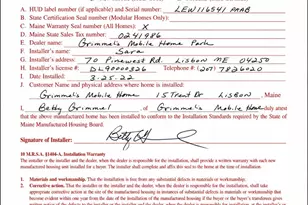 A. HUD label number (if applicable) and Serial number: LEW116541 AAAB
B. State Certification Seal number (Modular Homes Only):
C. Maine Warranty Seal number (All Homes): X
D. Maine State Sales Tax number: 0241986
E. Dealer name: Grimmel's Mobile Home Park
F. Installer's name: Sara
G. Installer's address: 70 Pinewoods Rd. Lisbon ME 04250
H. Installer's license #: DL90000326 Telephone #: 207 7826020
I. Date Installed: 3-25-22
J. Customer Name and physical address where home is installed:
Grimmel's Mobile Home 15 Lisbon , Maine
I, Betty Grimmel of Grimmel's Mobile Home duly attest
that the above manufactured home has been installed to conform to the Installation Standards required by the State of
Maine Manufactured Housing Board.
Signature of Installer:
10 M.R.S.A. §1404-A, Installation Warranty
The installer or the installer and the dealer, when the dealer is responsible for the installation, shall provide a written warranty with each new
manufactured housing unit installed for a buyer. The installer shall complete and affix this seal to the home at the time of installation.
1. Materials and workmanship. That the installation is free from any substantial defects in materials or workmanship.
2. Corrective action. That the installer or the installer and the dealer, when the dealer is responsible for the installation, shall take
appropriate corrective action at the site of the manufactured housing in instances of substantial defects in materials or workmanship that
become evident within one year from the date of the installation of the manufactured housing if the buyer or the transferee gives